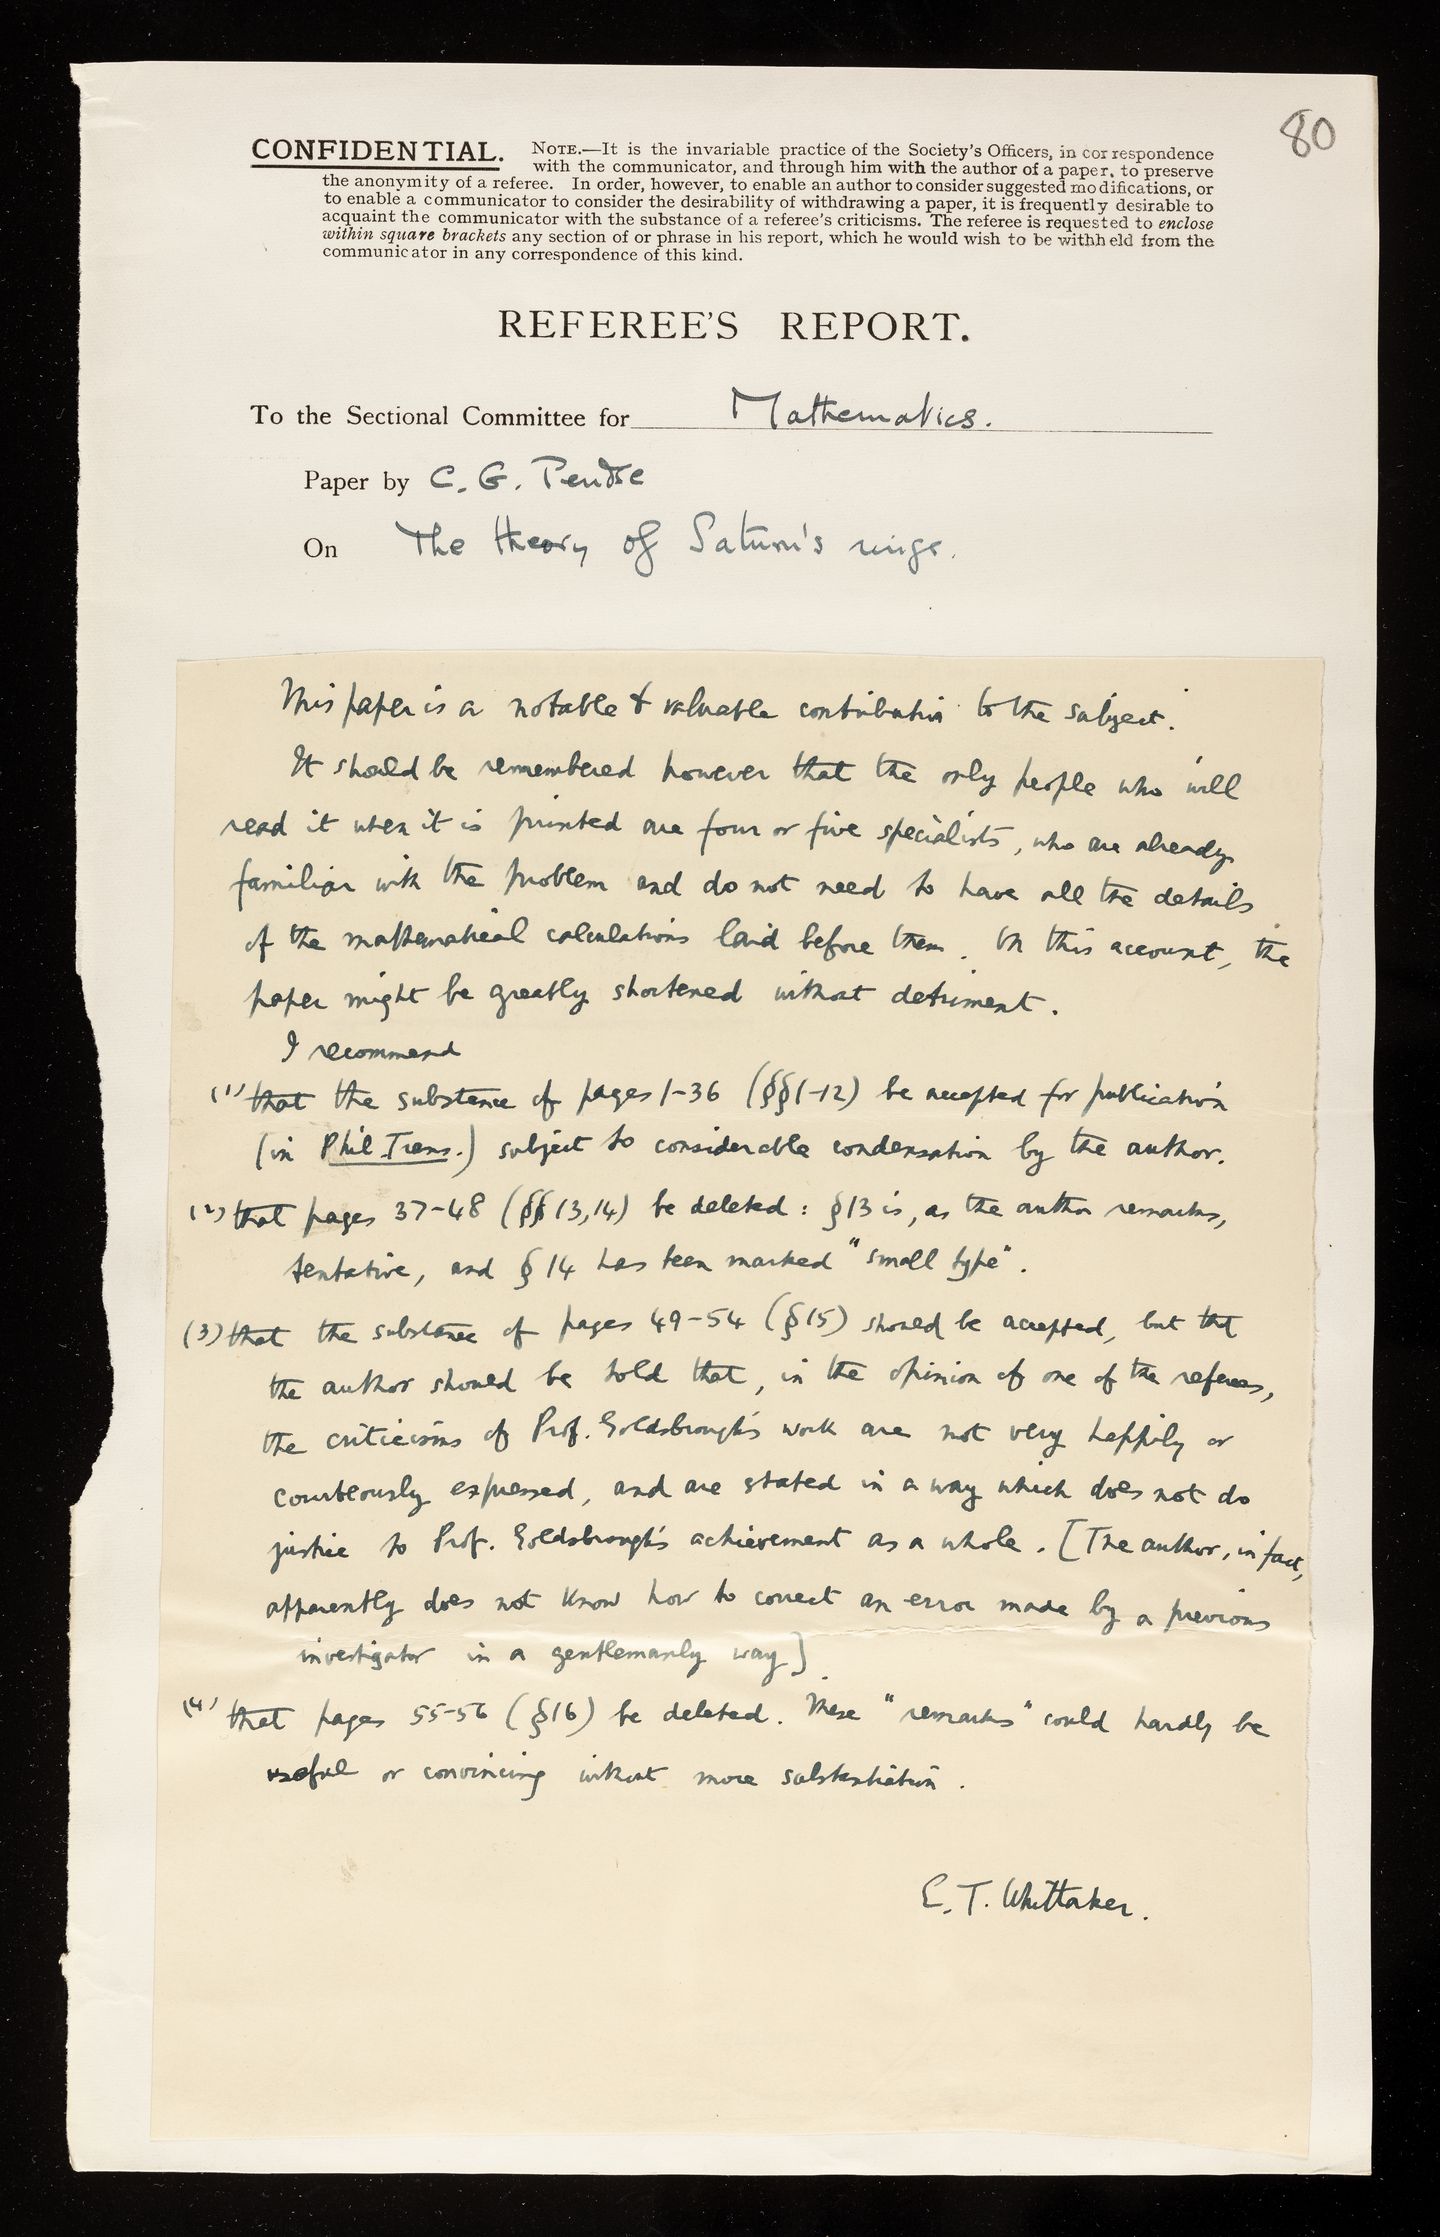 80
CONFIDENTIAL. NOTE.—It is the invariable practice of the Society's Officers, in correspondence
with the communicator, and through him with the author of a paper, to preserve
the anonymity of a referee. In order, however, to enable an author to consider suggested modifications, or
to enable a communicator to consider the desirability of withdrawing a paper, it is frequently desirable to
acquaint the communicator with the substance of a referee's criticisms. The referee is requested to enclose
within square brackets any section of or phrase in his report, which he would wish to be withheld from the
communicator in any correspondence of this kind.
REFEREE'S REPORT.
To the Sectional Committee for Mathematics.
Paper by C. G. Pendse
On The theory of Saturn's rings.
This paper is a notable & valuable contribution to the subject.
It should be remembered however that the only people who will
read it when it is printed are four or five specialists, who are already
familiar with the problem and do not need to have all the details
of the mathematical calculations laid before them. On this account, the
paper might be greatly shortened without detriment.
I recommend
(1) that the substance of pages 1-36 (§§1-12) be accepted for publication
(in Phil. Trans.) subject to considerable condensation by the author.
(2) that pages 37-48 (§§13,14) be deleted: §13 is, as the author remarks,
tentative, and §14 has been marked "small type".
(3) that the substance of pages 49-54 (§15) should be accepted, but that
the author should be told that, in the opinion of one of the referees,
the criticisms of Prof. Goldsbrough's work are not very happily or
courteously expressed, and are stated in a way which does not do
justice to Prof. Goldsbrough's achievement as a whole. [The author, in fact,
apparently does not know how to correct an error made by a previous
investigator in a gentlemanly way]
(4) that pages 55-56 (§16) be deleted. These "remarks" could hardly be
useful or convincing without more substantiation.
E. T. Whittaker.